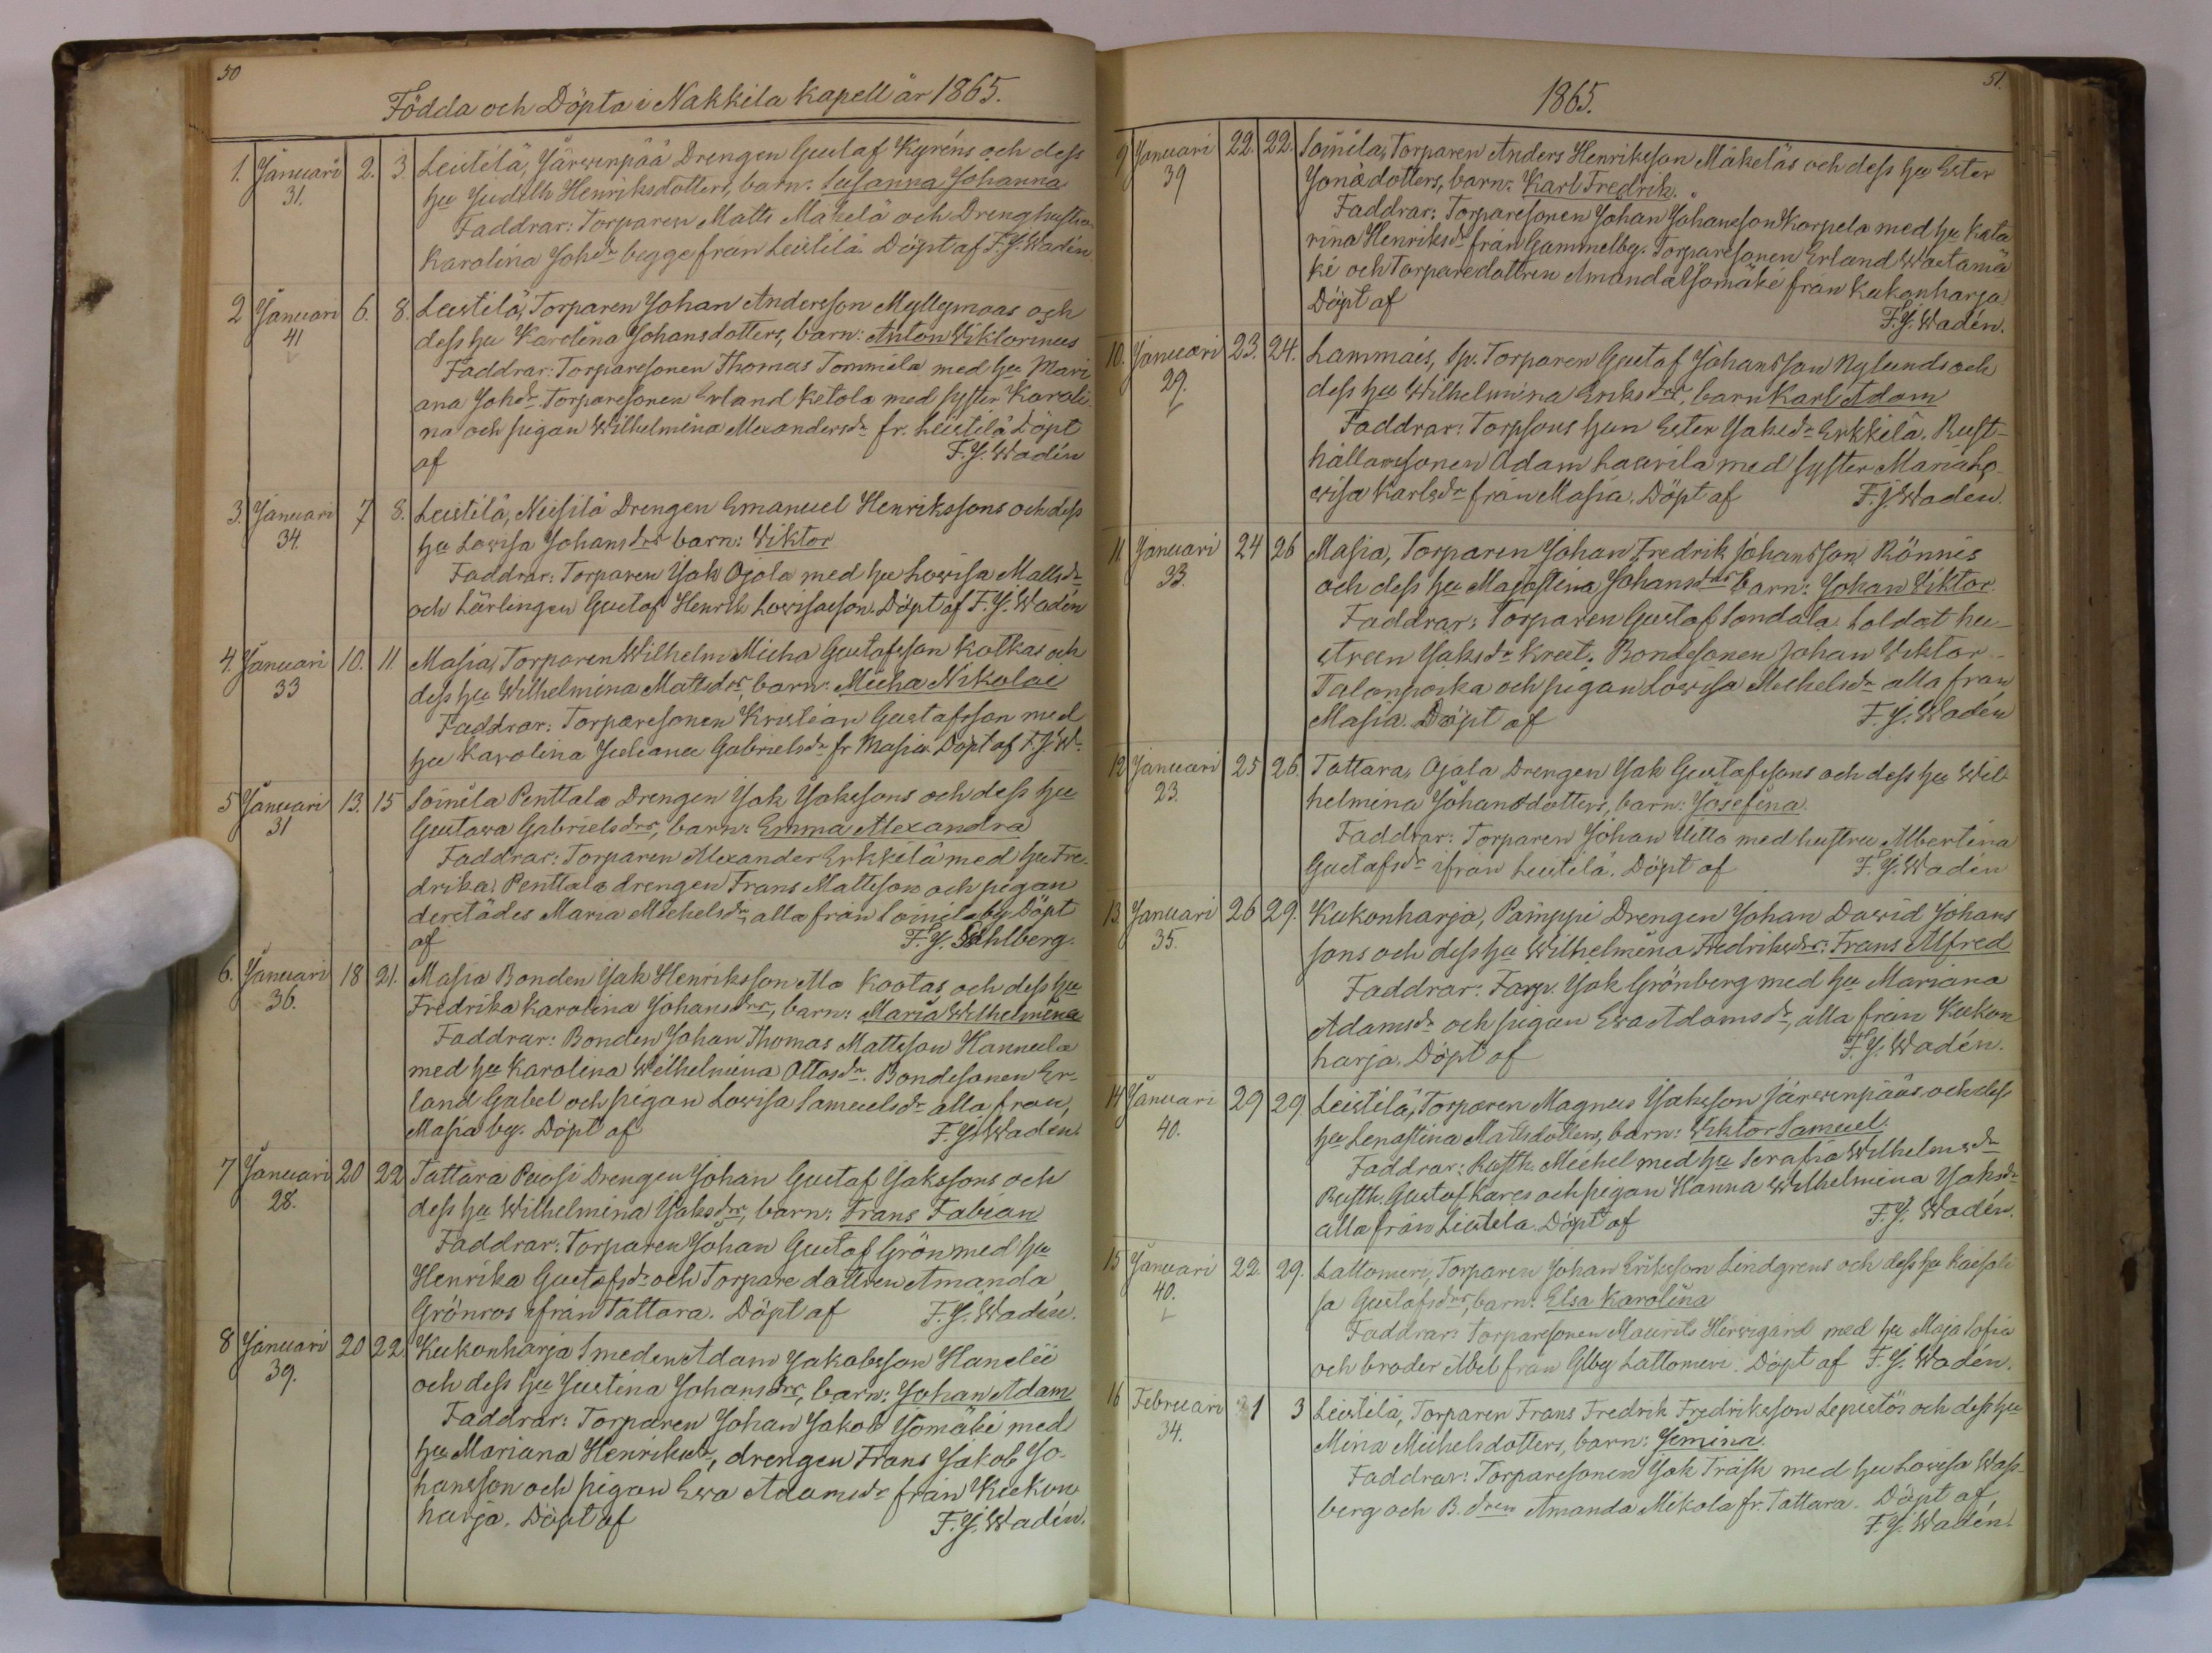 50
Födda och Döpta i Nakkila Kapell år 1865.
1. Januari 2. 3. Leistilä, Järwenpää Drengen Gustaf Kyréns och dess
31. hu Judith Henriksdotters, barn: Susanna Johanna
Faddrar: Torparen Matts Mäkelä och Drenghustrun
Karolina Johdr begge från Leistilä. Döpt af F. J. Wadén
2 Januari 6. 8. Leistilä, Torparen Johan Andersson Myllymaas och
41 dess hu Karolina Johansdotters, barn: Anton Wiktorinus
Faddrar: Torparesonen Thomas Tommila med hu Mari
ana Johdr Torparesonen Erland Ketola med syster Karoli
na och pigan Wilhelmina Alexandersdr fr. Leistilä Döpt
af F. J. Wadén
3. Januari 7 8. Leistilä, Niisilä Drengen Emanuel Henrikssons och dess
34. hu Lowisa Johansdrs barn: Wiktor
Faddrar: Torparen Jak Ojala med hu Lowisa Mattsdr
och Lärlingen Gustaf Henrik Lowisason. Döpt af F. J. Wadén
4. Januari 10. 11. Masia, Torparen Wilhelm Micha Gustafsson Kotkas och
33 dess hu Wilhelmina Mattsdrs, barn: Micha Nikolai
Faddrar: Torparesonen Kristian Gustafsson med
hu Karolina Juliana Gabrielsdr fr Masia. Döpt af F. J. Wn
5 Januari 13. 15 Soinila Penttala Drengen Jak Jakssons och dess hu
31 Gustawa Gabrielsdrs, barn: Emma Alexandra
Faddrar: Torparen Alexander Erkkilä med hu Fre-
drika, Penttala drengen Frans Mattsson och pigan
derstädes Maria Michelsdr, alla från Soinila by. Döpt
af F. J. Sahlberg.
6. Januari 18 21. Masia Bonden Jak Henriksson Ala Kootas, och dess hu
36. Fredrika Karolina Johansdrs, barn: Maria Wilhelmina
Faddrar: Bonden Johan Thomas Mattsson Hannula
med hu Karolina Wilhelmina Ottosdr. Bondesonen Er-
land Gabel och pigan Lowisa Samuelsdr alla från,
Masia by. Döpt af F. J. Wadén.
7 Januari 20 22. Tattara Puosi Drengen Johan Gustaf Jakssons och
28. dess hu Wilhelmina Jaksdrs, barn: Frans Fabian
Faddrar: Torparen Johan Gustaf Grön med hu
Henrika Gustafsdr och Torpare dottren Amanda
Grönros ifrån Tattara. Döpt af F. J. Wadén.
8 Januari 20 22. Kukonharja Smeden Adam Jakobsson Hanelii
39. och dess hu Justina Johansdrs, barn: Johan Adam
Faddrar: Torparen Johan Jakob Isomäki med
hu Mariana Henriksdr, drengen Frans Jakob Jo-
hansson och pigan Ewa Adamsdr från Kukon
harja. Döpt af F. J. Wadén.
51.
1865.
9 Januari 22. 22. Soinila, Torparen Anders Henriksson Mäkeläs och dess hu Ester
39 Jonædotters, barn: Karl Fredrik.
Faddrar: Torparesonen Johan Johansson Korpela med hu Kata
rina Henriksdr från Gammelby. Torparesonen Erland Wartamä
ki och Torparedottren Amanda Isomäki från Kukonharja
Döpt af
F. J. Wadén.
10. Januari 23. 24. Lammais, Sp. Torparen Gustaf Johansson Nylunds och
29. dess hu Wilhelmina Eriksdrs, barn Karl Adam
Faddrar: Torpsons hun Ester Jaksdr Erkkilä. Rust-
hållaresonen Adam Laurila med syster Maria Lo-
wisa Karlsdr från Masia. Döpt af F. J. Wadén.
11 Januari 24 26 Masia, Torparen Johan Fredrik Johansson Rönnis
33. och dess hu Majastina Johansdrs barn: Johan Wiktor.
Faddrar: Torparen Gustaf Sondala. Soldat hu-
strun Jaksdr Krut. Bondesonen Johan Wiktor
Talonpoika och pigan Lowisa Michelsdr alla från
Masia. Döpt af F. J. Wadén
12 Januari 25 26. Tattara, Ojala Drengen Jak Gustafssons och dess hu Wil-
23. helmina Johansdotters, barn: Josefina.
Faddrar: Torparen Johan Uitto med hustru Albertina
Gustafsdr ifrån Leistilä. Döpt af F. J. Wadén
13. Januari 26 29. Kukonharja, Pamppi Drengen Johan Dawid Johans
35. sons och dess hu Wilhelmina Fredriksdrs: Frans Alfred
Faddrar: Torp. Jak Grönberg med hu Mariana
Adamsdr och pigan Ewa Adamsdr, alla från Kukon
harja. Döpt af F. J. Wadén.
14 Januari 29 29 Leistilä, Torparen Magnus Jaksson Järwenpääs och dess
40. hu Lenastina Mattsdotters, barn: Wiktor Samuel.
Faddrar: Rusth. Michel med hu Serafia Wilhelmsdr
Rusth. Gustaf Kares och pigan Hanna Wilhelmina Jaksdr
alla från Listela. Döpt af F. J. Wadén.
15 Januari 22. 29. Lattomeri, Torparen Johan Eriksson Lindgrens och dess hu Kaisali
40. sa Gustafsdrs, barn: Elsa Karolina
Faddrar: Torparesonen Maurits Hirwigård med hu Maja Sofia
och broder Abel från Ylby Lattomeri. Döpt af F. J. Wadén.
16 Februari 1 3 Leistilä, Torparen Frans Fredrik Fredriksson Lepistös och dess hu
34. Mina Michelsdotters, barn: Jemina.
Faddrar: Torparesonen Jak Träsk med hu Lowisa Wass-
berg och B. dren Amanda Mikola fr. Tattara. Döpt af
F. J. Wadén.